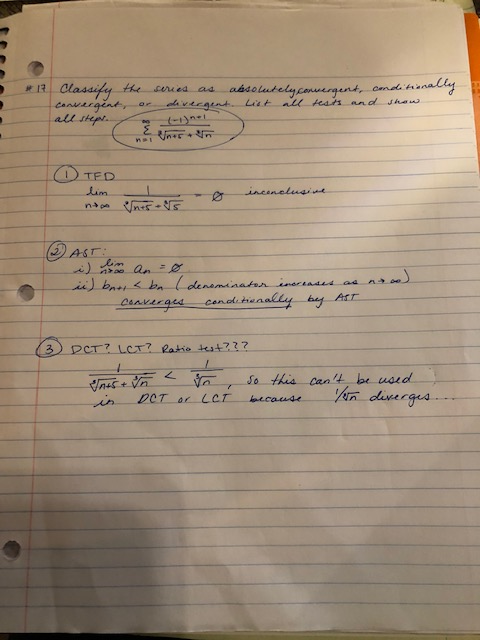 #17 Classify the series as absolutely convergent, conditionally
convergent, or divergent. List all tests and show
all steps.
∞ Σ n=1 (-1)^(n+1) / (∛(n+5) + ∛n)
① TFD
lim n→∞ 1 / (∛(n+5) + ∛5) = ∅ inconclusive
② AST:
i) lim n→∞ an = ∅
ii) bn+1 < bn (denominator increases as n→∞)
converges conditionally by AST
③ DCT? LCT? Ratio test???
1 / (∛(n+5) + ∛n) < 1 / ∛n, so this can't be used
in DCT or LCT because 1/∛n diverges...